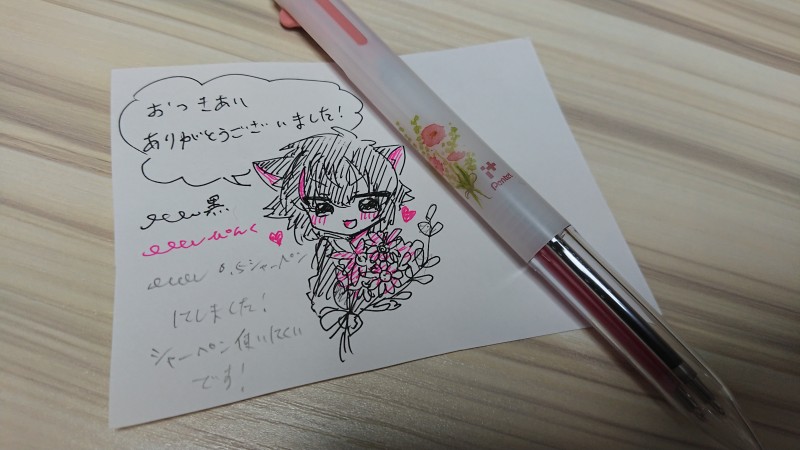 おつきあい
ありがとうございました!
黒
ぴんく
0.5シャーペン
にしました!
シャーペン使いにくい
です!
Pentel